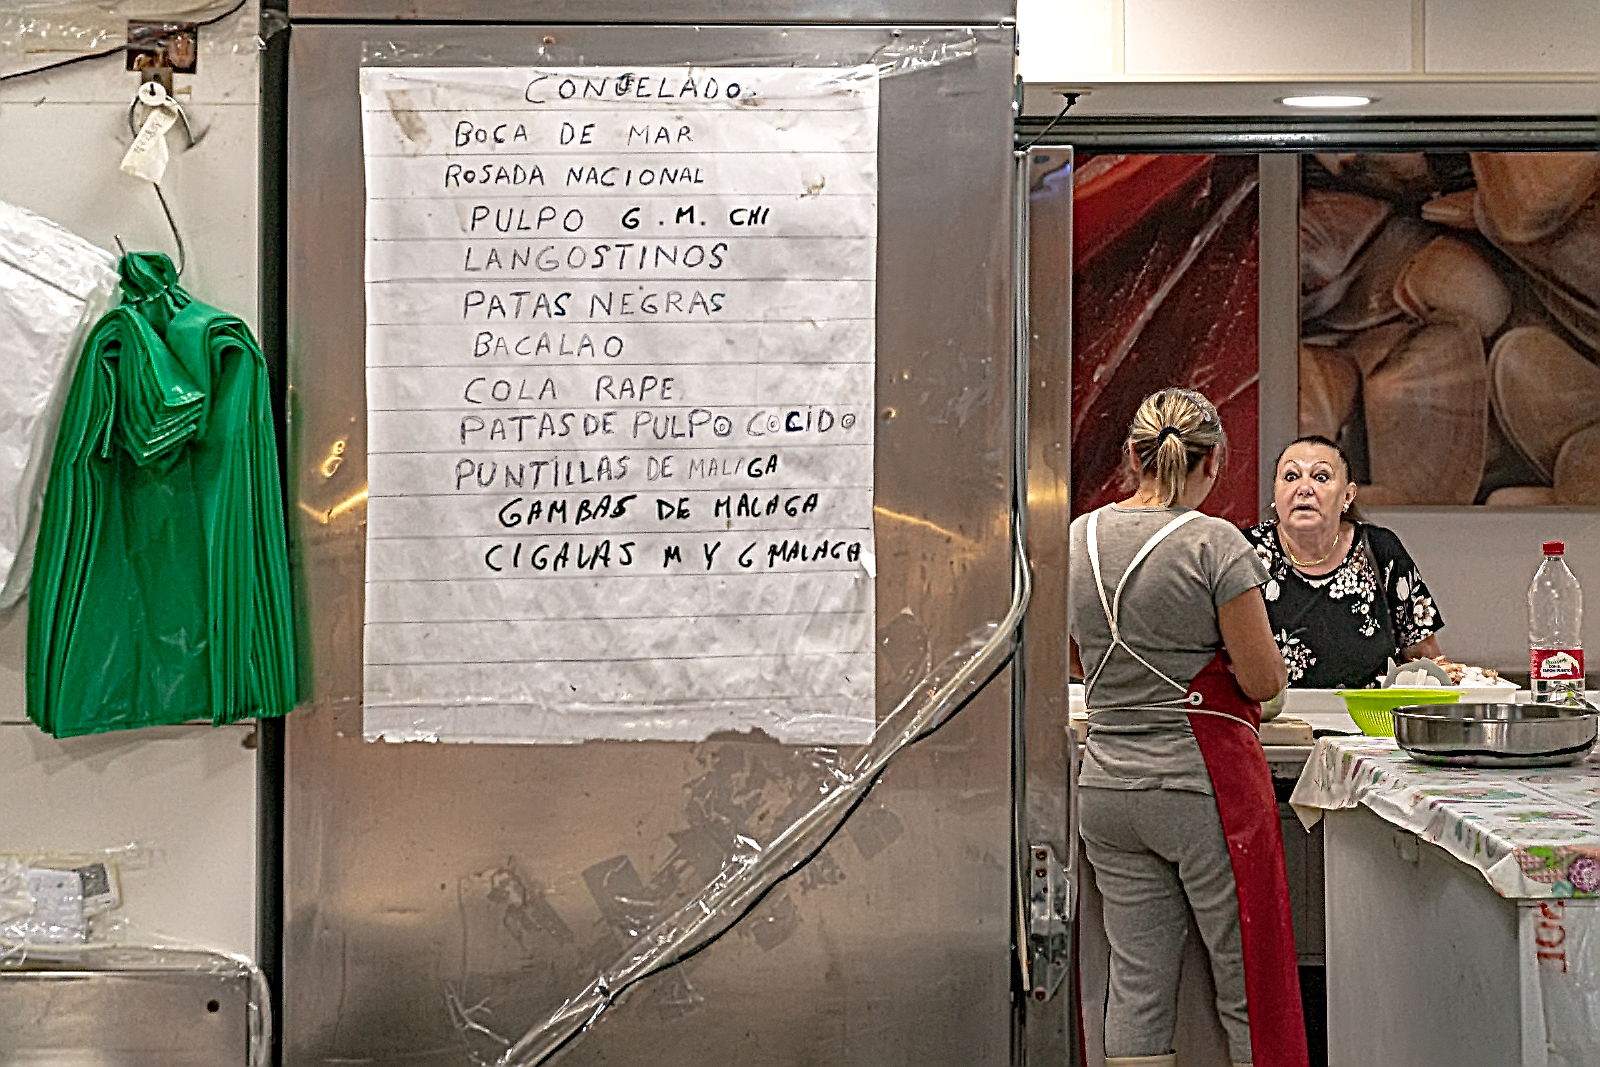 CONGELADO.
BOCA DE MAR
ROSADA NACIONAL
PULPO G. M. CHI
LANGOSTINOS
PATAS NEGRAS
BACALAO
COLA RAPE
PATAS DE PULPO COCIDO
PUNTILLAS DE MALAGA
GAMBAS DE MALAGA
CIGALAS M Y G MALAGA